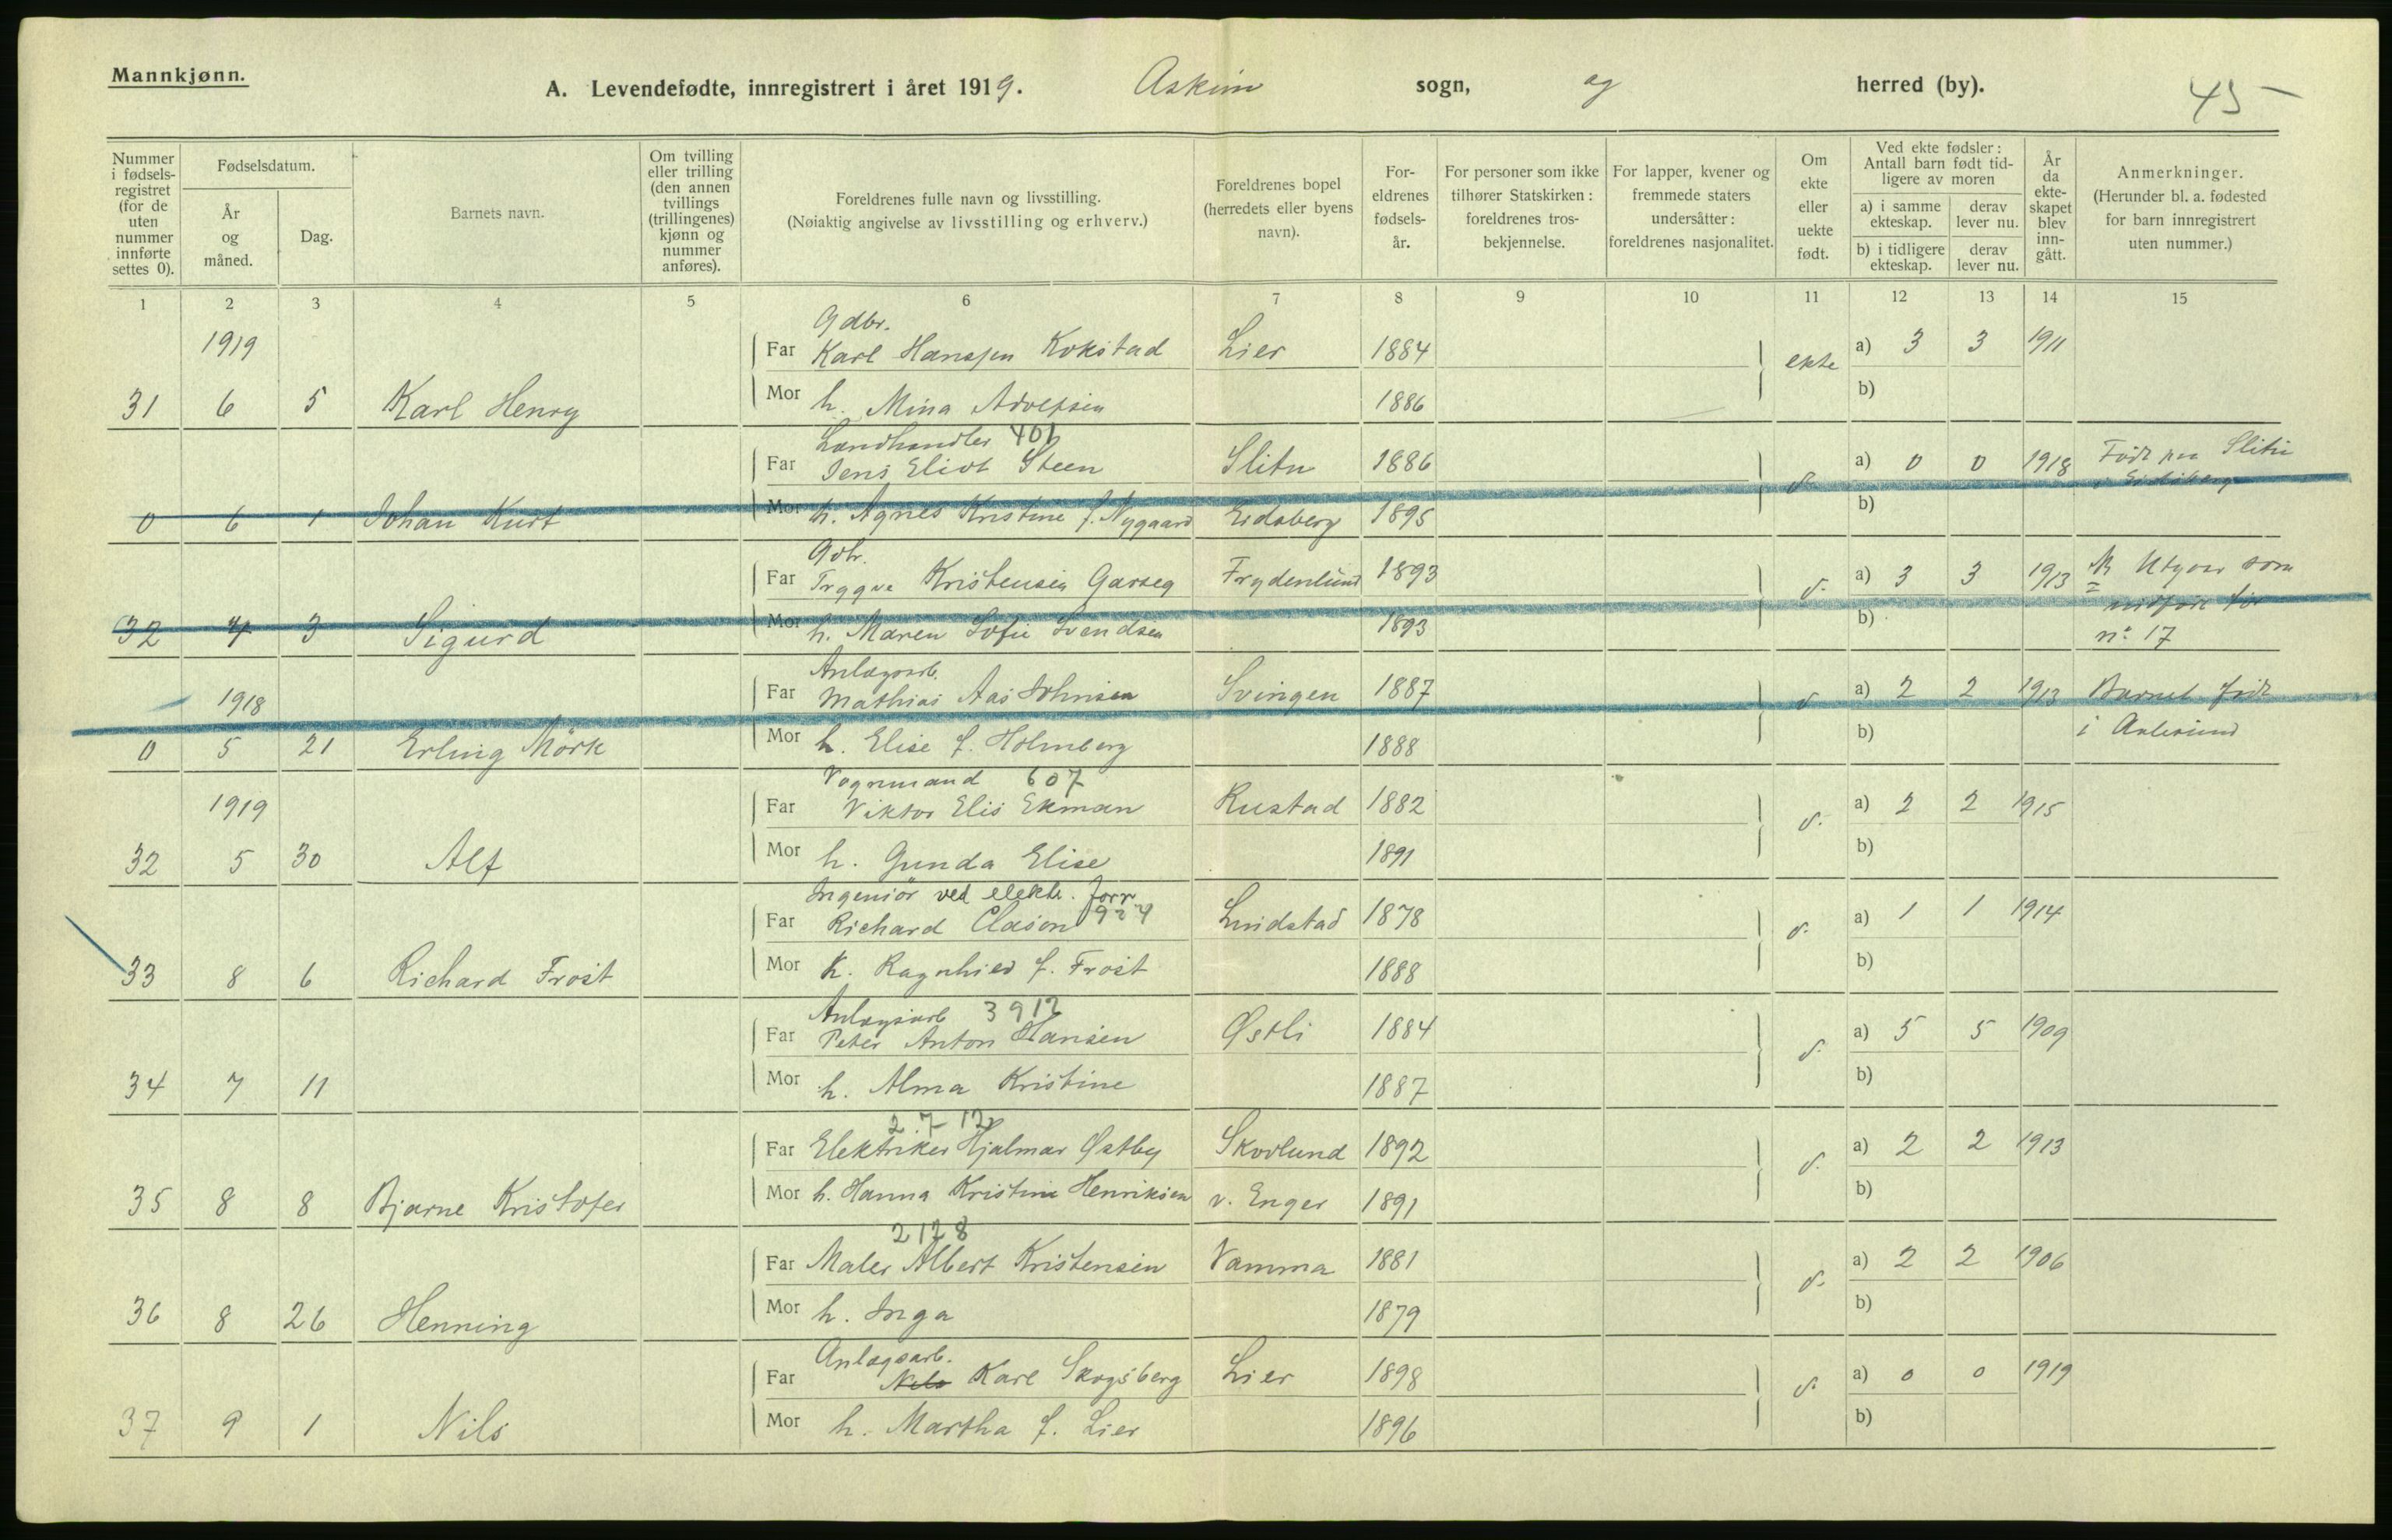 Mannkjønn.
A. Levendefødte, innregistrert i året 1919. Askim sogn, og herred (by). 45
Nummer i fødsels-registret (for de uten nummer innførte settes 0).
Fødselsdatum.
År og måned.
Dag.
Barnets navn.
Om tvilling eller trilling (den annen tvillings (trillingenes) kjønn og nummer anføres).
Foreldrenes fulle navn og livsstilling.
(Nøiaktig angivelse av livsstilling og erhverv.)
Foreldrenes bopel (herredets eller byens navn).
For-eldrenes fødsels-år.
For personer som ikke tilhører Statskirken: foreldrenes tros-bekjennelse.
For lapper, kvener og fremmede staters undersåtter: foreldrenes nasjonalitet.
Om ekte eller uekte født.
Ved ekte fødsler: Antall barn født tid-ligere av moren
a) i samme ekteskap. derav lever nu.
b) i tidligere ekteskap. derav lever nu.
År da ekte-skapet blev inn-gått.
Anmerkninger.
(Herunder bl. a. fødested for barn innregistrert uten nummer.)
1 2 3 4 5 6 7 8 9 10 11 12 13 14 15
Gdbr.
1919 Far Karl Hansen Kokstad Lier 1884 ekte a) 3 3 1911
31 6 5 Karl Henry Mor h. Mina Adolfsen 1886 b)
Landhandler 401
Far Jens Eliot Steen Slitu 1886 d. a) 0 0 1918 Født paa Slitu
i Eidsberg
0 6 1 Johan Kurt Mor h. Agnes Kristine f. Nygaard Eidsberg 1895 b)
Gbr.
Far Trygve Kristensen Garseg Frydenlund 1893 d. a) 3 3 1913 Utgaar som
indført før
32 4 3 Sigurd Mor h. Maren Sofie Svendsen 1893 b) n: 17
Anlægsarb.
1918 Far Mathias Aas Johnsen Svingen 1887 d a) 2 2 1913 Barnet født
0 5 21 Erling Mörk Mor h. Elise f. Holmberg 1888 b) i Aalesund
Vognmand 607
1919 Far Viktor Elis Ekman Rustad 1882 d. a) 2 2 1915
32 5 30 Alf Mor h. Gunda Elise 1891 b)
Ingeniör ved elektr. forr.
Far Richard Clason 924 Lundstad 1878 d. a) 1 1 1914
33 8 6 Richard Frost Mor h. Ragnhild f. Frost 1888 b)
Anlægsarb 3912
Far Peter Anton Hansen Østli 1884 d. a) 5 5 1909
34 7 11 Mor h. Alma Kristine 1887 b)
2.7 12
Far Elektriker Hjalmar Østby Skovlund 1892 d. a) 2 2 1913
35 8 8 Bjarne Kristofer Mor h. Hanna Kristine Henriksen v. Enger 1891 b)
2128
Far Maler Albert Kristensen Vamma 1881 d. a) 2 2 1906
36 8 26 Henning Mor h. Inga 1879 b)
Anlægsarb.
Far Nils Karl Skogsberg Lier 1898 d. a) 0 0 1919
37 9 1 Nils Mor h. Martha f. Lier 1896 b)